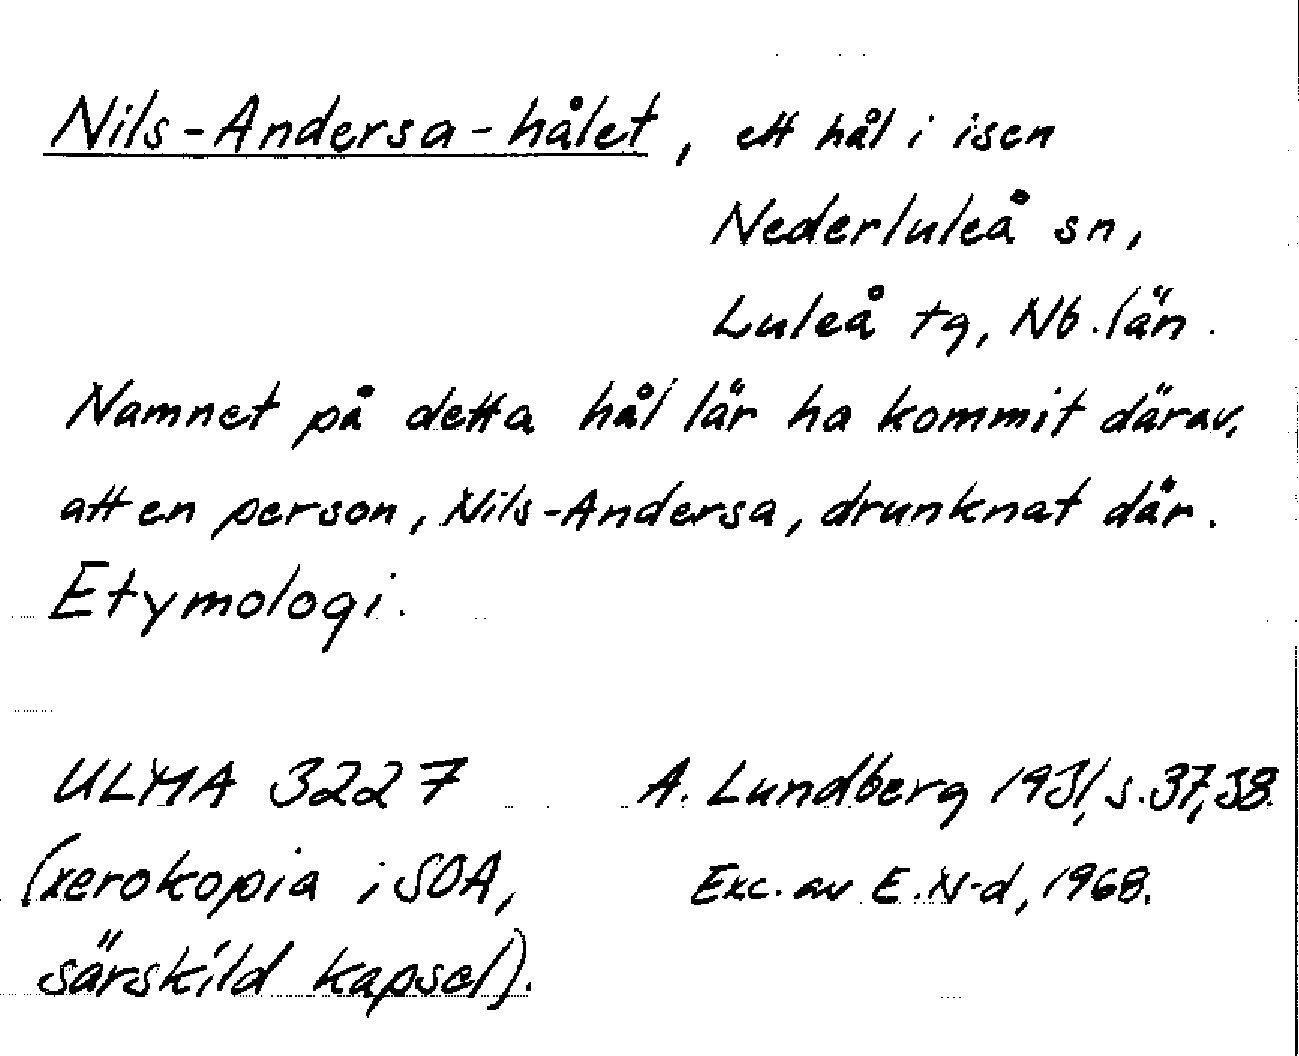 Nils-Andersa-hålet, ett hål i isen
Nederluleå sn,
Luleå tg, Nb. län.
Namnet på detta hål lär ha kommit därav,
att en person, Nils-Andersa, drunknat där.
Etymologi.
ULMA 3227 A. Lundberg 1931, s. 37, 38.
(xerokopia i SOA, Exc. av E. N-d, 1968.
särskild kapsel).